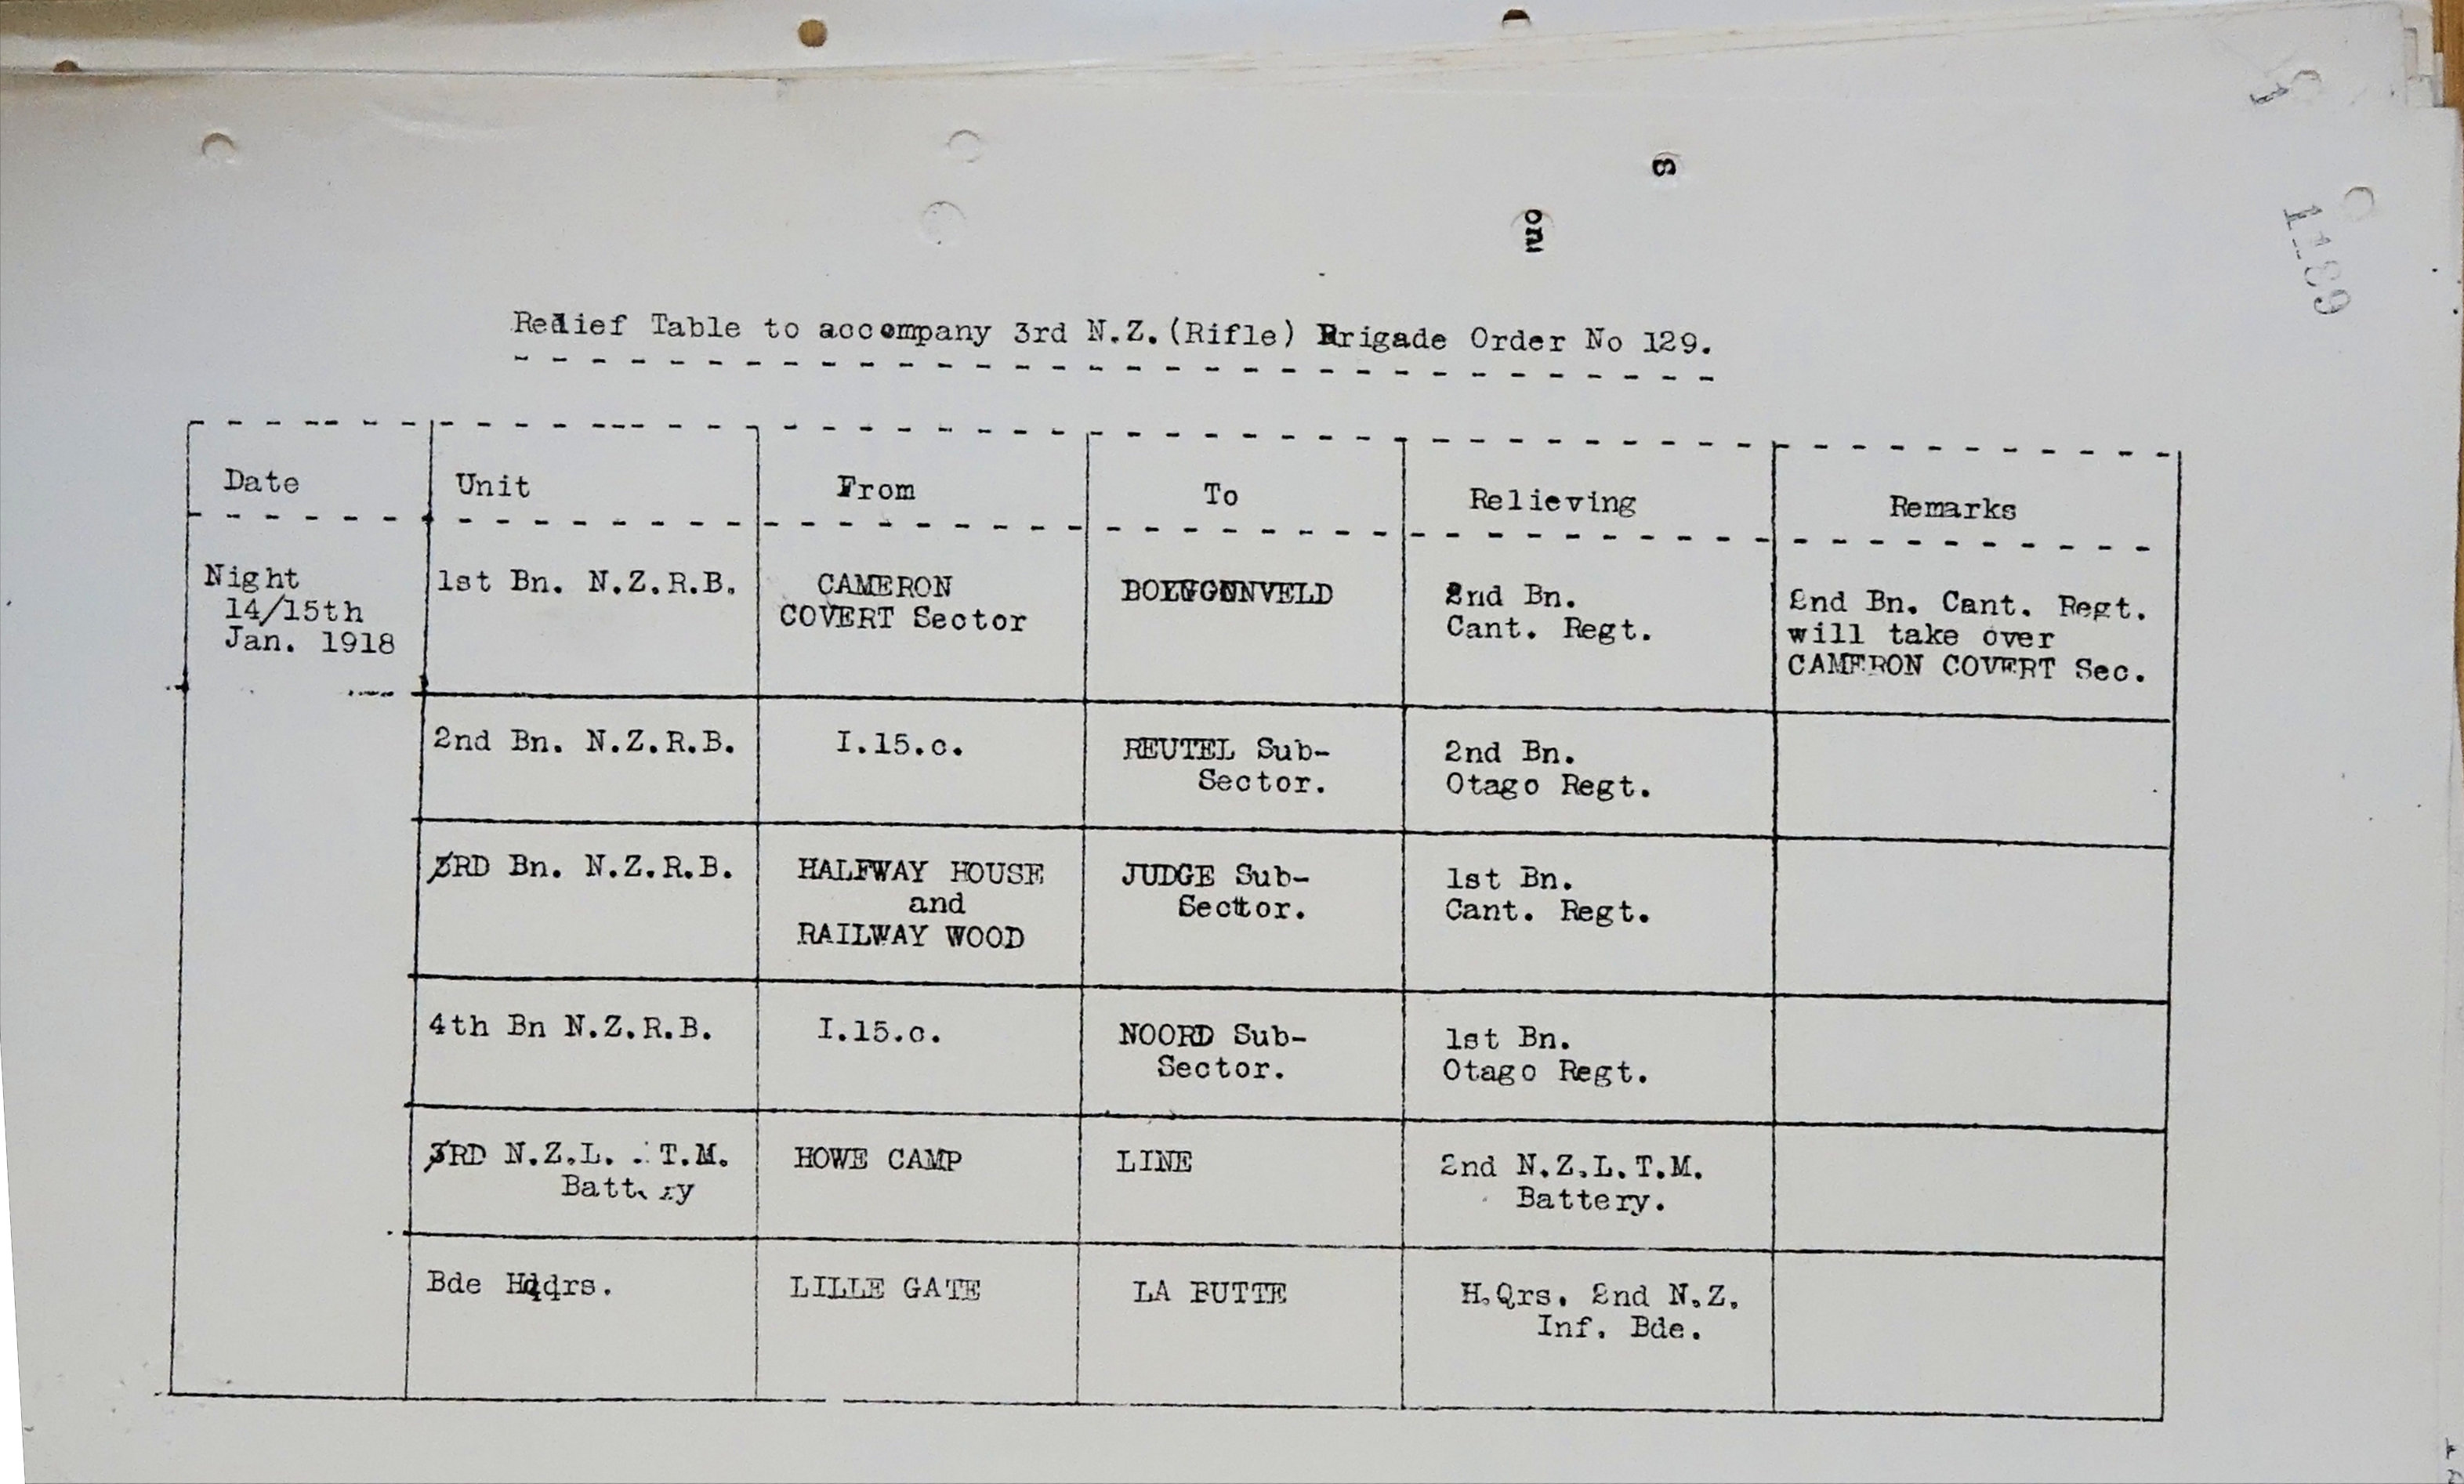 1189
Relief Table to accompany 3rd N.Z.(Rifle) Brigade Order No 129.
Date Unit From To Relieving Remarks
Night
14/15th
Jan. 1918
1st Bn. N.Z.R.B.
CAMERON
COVERT Sector
2nd Bn.
Cant. Regt.
2nd Bn. Cant. Regt.
will take over
CAMERON COVERT Sec.
2nd Bn. N.Z.R.B.
I.15.c.
REUTEL Sub-
Sector.
2nd Bn.
Otago Regt.
3RD Bn. N.Z.R.B.
HALFWAY HOUSE
and
RAILWAY WOOD
JUDGE Sub-
Sector.
1st Bn.
Cant. Regt.
4th Bn N.Z.R.B.
I.15.c.
NOORD Sub-
Sector.
1st Bn.
Otago Regt.
3RD N.Z.L. T.M.
Battery
HOWE CAMP
LINE
2nd N.Z.L.T.M.
Battery.
Bde Hdqrs.
LILLE GATE
LA BUTTE
H.Qrs. 2nd N.Z.
Inf. Bde.